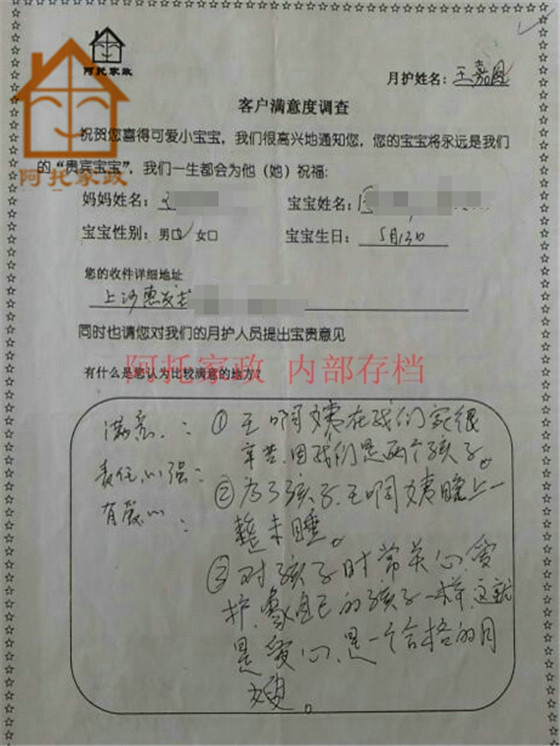 阿托家政
阿托家政
月护姓名：王嘉恩
客户满意度调查
祝贺您喜得可爱小宝宝，我们很高兴地通知您，您的宝宝将永远是我们
的“贵宾宝宝”，我们一生都会为他（她）祝福：
妈妈姓名： 宝宝姓名：
宝宝性别：男口✓女口 宝宝生日：5月13日
您的收件详细地址
上沙惠
同时也请您对我们的月护人员提出宝贵意见
阿托家政 内部存档
有什么是您认为比较满意的地方？
满意：①王啊姨在我们家很
辛苦、因我们是两个孩子。
责任心强：
②为了孩子、王啊姨晚上一
有爱心：
整未睡。
③对孩子时常关心、爱
护、象自己的孩子一样、这就
是爱心、是一个合格的月
嫂。